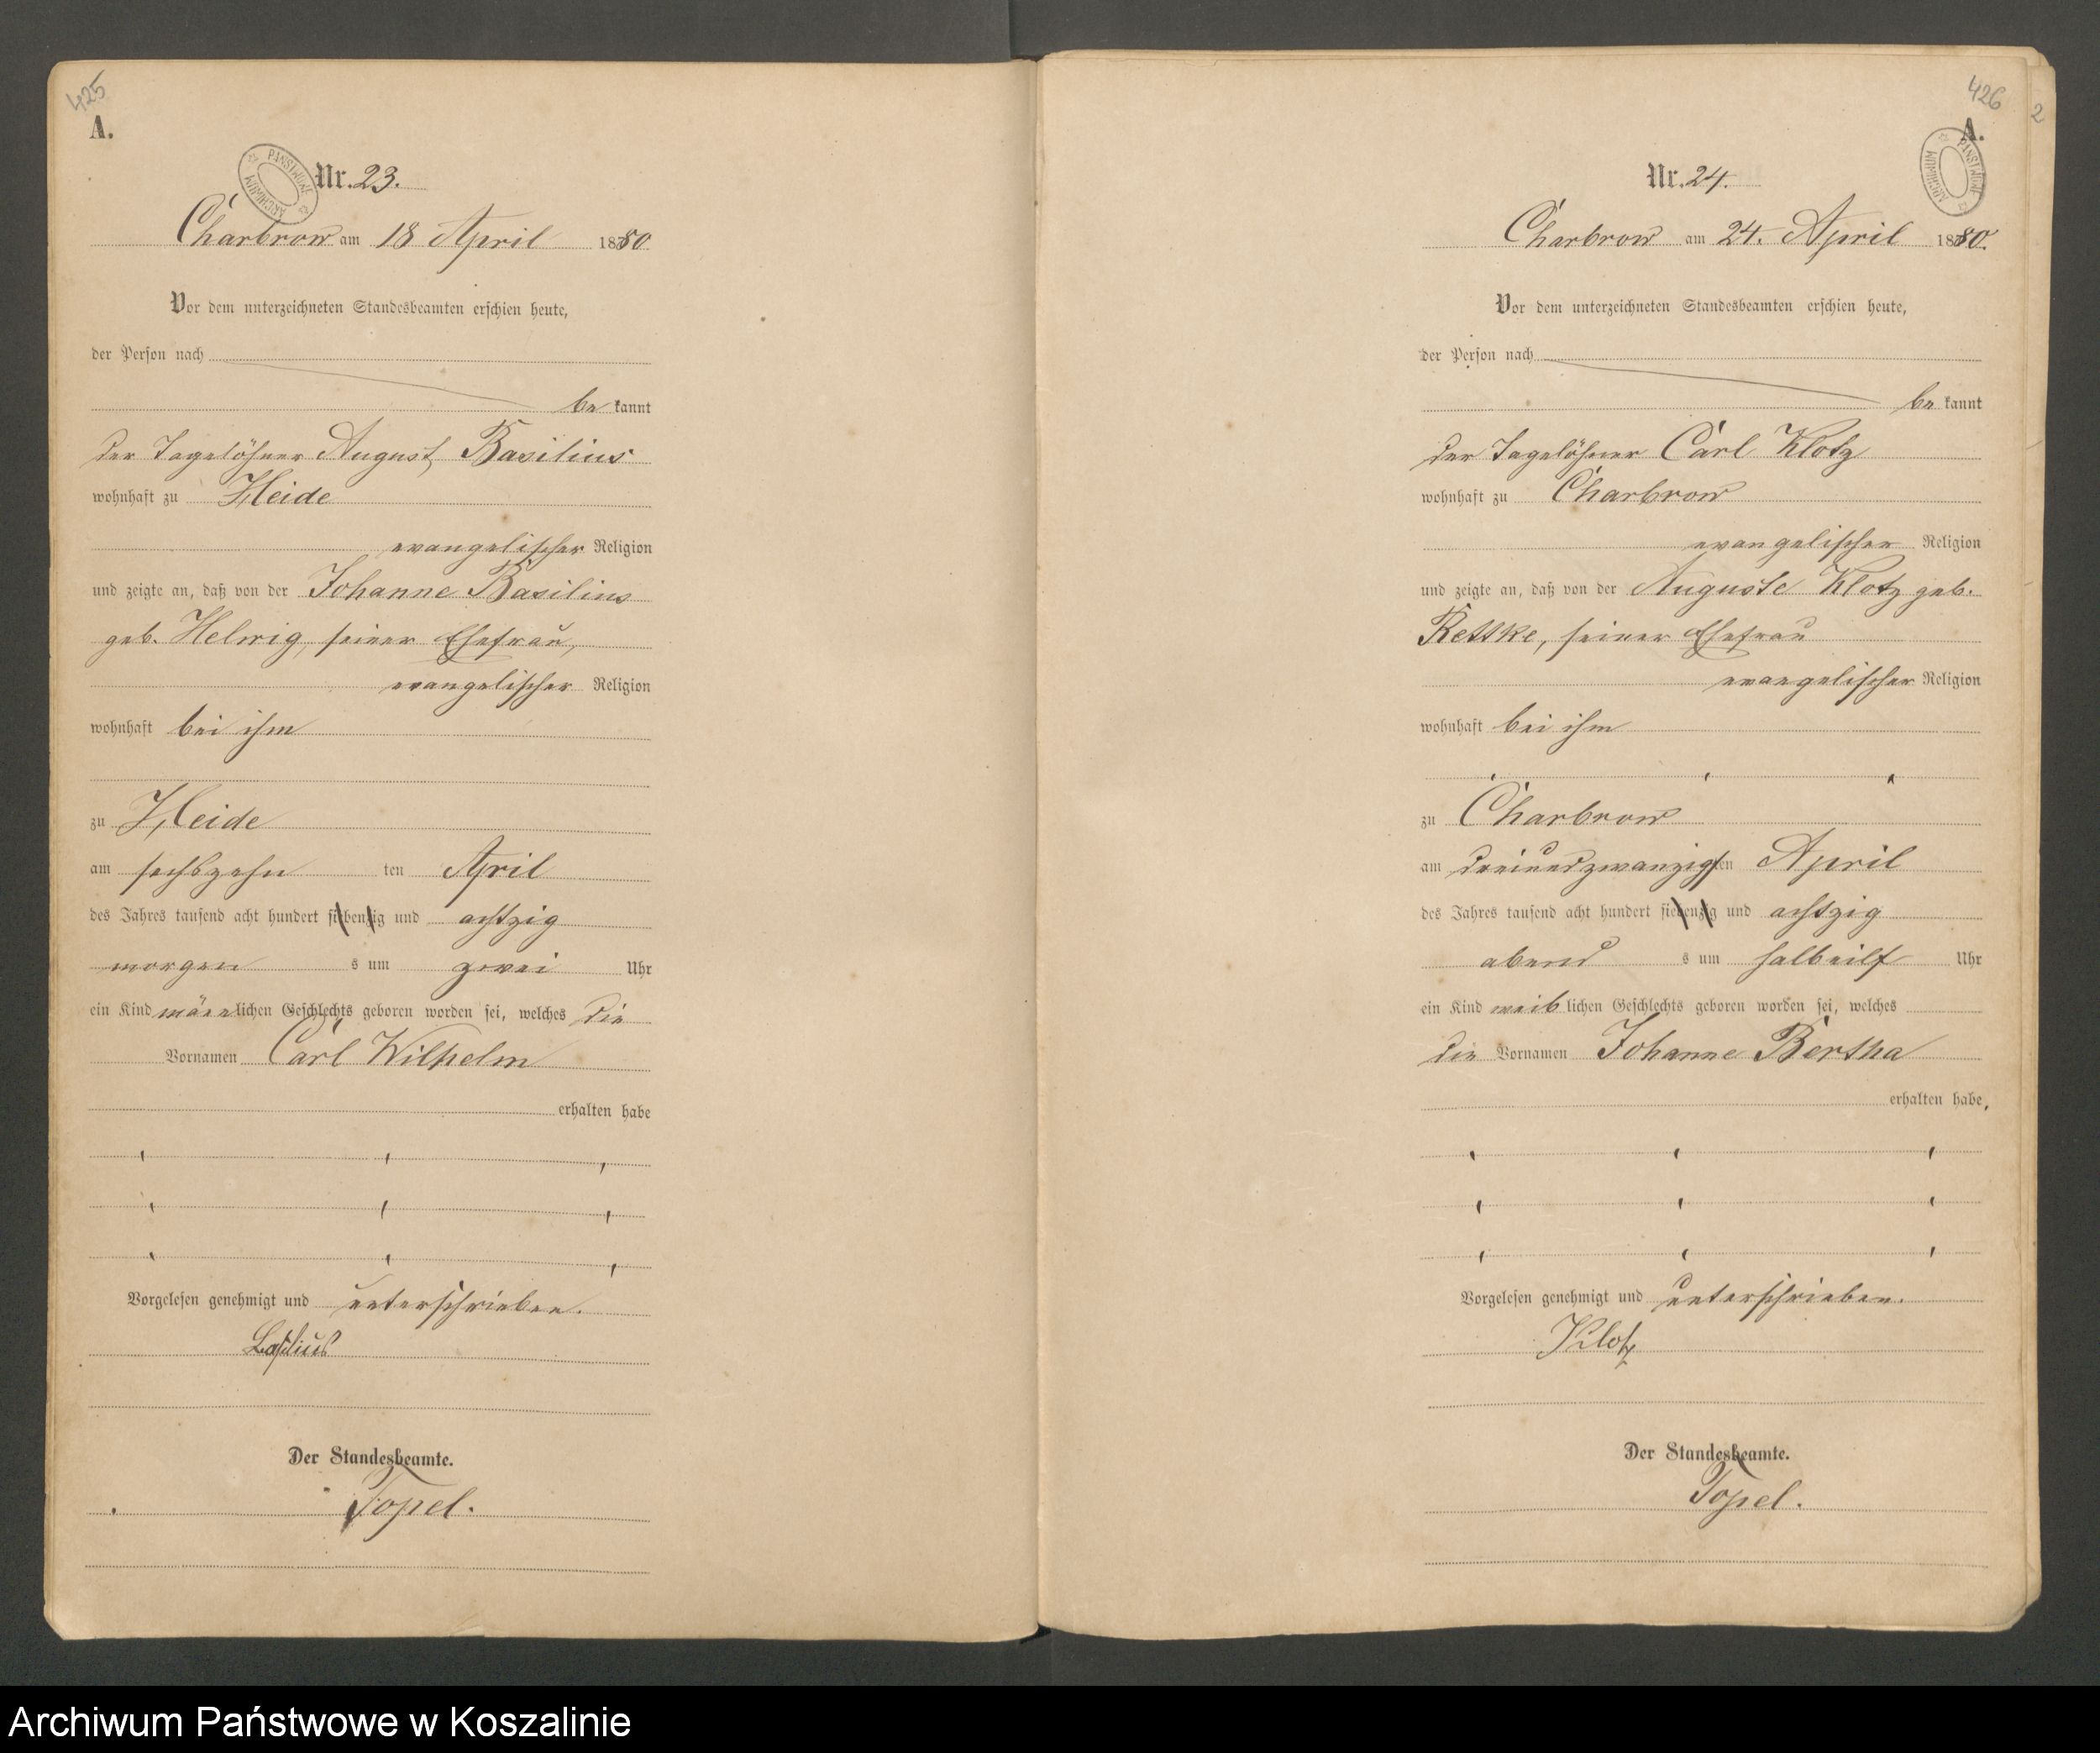 425
A.
ARCHIWUM PAŃSTWOWE
Nr. 23.
Charbrow am 18 April 1880
Vor dem unterzeichneten Standesbeamten erschien heute,
der Person nach
be kannt
der Tagelöhner August Basilius
wohnhaft zu Heide
evangelischer Religion
und zeigte an, daß von der Johanne Basilius
geb. Helwig, seiner Ehefrau,
evangelischer Religion
wohnhaft bei ihm
zu Heide
am sechszehn ten April
des Jahres tausend acht hundert siebenzig und achtzig
morgen s um zwei Uhr
ein Kind männlichen Geschlechts geboren worden sei, welches die
Vornamen Carl Wilhelm
erhalten habe
Vorgelesen genehmigt und unterschrieben.
Basilius
Der Standesbeamte.
Topel.
426
2
A.
ARCHIWUM PAŃSTWOWE
Nr. 24.
Charbrow am 24. April 1880.
Vor dem unterzeichneten Standesbeamten erschien heute,
der Person nach
be kannt
der Tagelöhner Carl Klotz
wohnhaft zu Charbrow
evangelischer Religion
und zeigte an, daß von der Auguste Klotz geb.
Rettke, seiner Ehefrau
evangelischer Religion
wohnhaft bei ihm
zu Charbrow
am dreiundzwanzigsten April
des Jahres tausend acht hundert siebenzig und achtzig
abend s um halbeilf Uhr
ein Kind weiblichen Geschlechts geboren worden sei, welches
die Vornamen Johanne Bertha
erhalten habe,
Vorgelesen genehmigt und unterschrieben.
Klotz
Der Standesbeamte.
Topel.
Archiwum Państwowe w Koszalinie